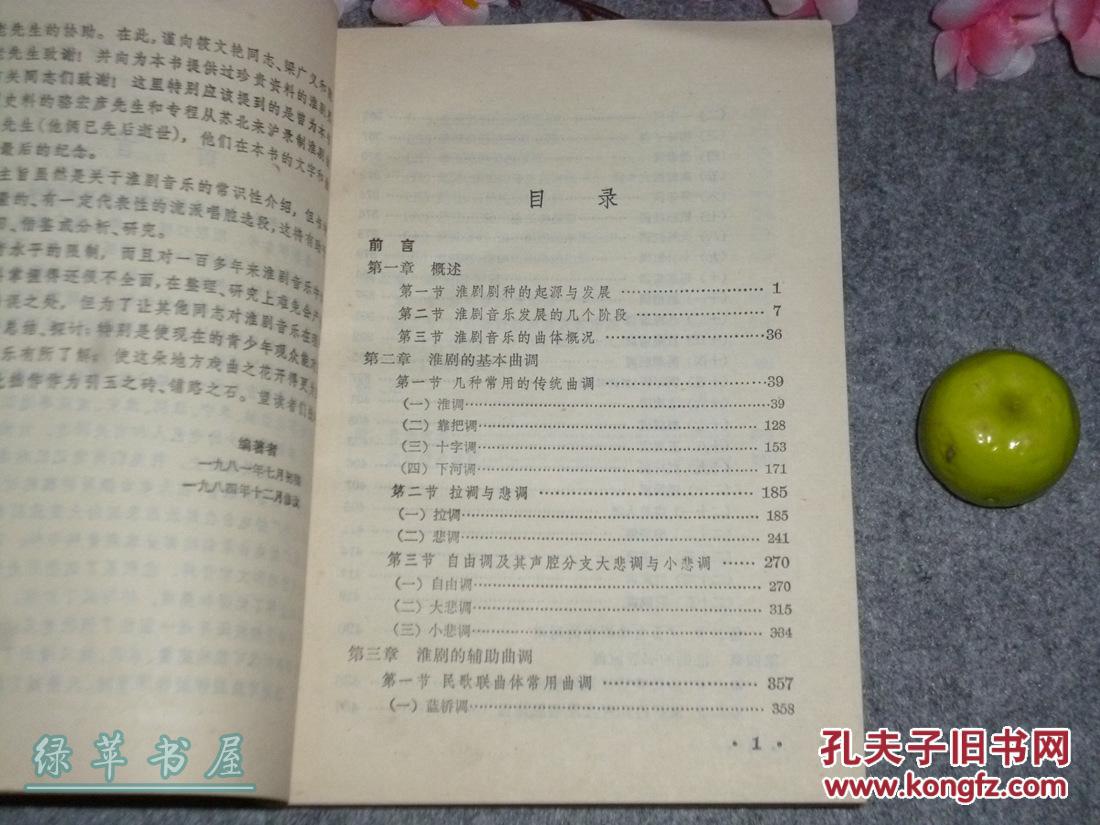 老先生的协助。在此，谨向筱文艳同志、梁广义和
老先生致谢！并向为本书提供过珍贵资料的淮剧
关同志们致谢！这里特别应该提到的是曾为本
史料的骆宏彦先生和专程从苏北来沪录制淮剧
先生(他俩已先后逝世)，他们在本书的文字和
最后的纪念。
主旨虽然是关于淮剧音乐的常识性介绍，但书
量的、有一定代表性的流派唱腔选段，这将有助
习、借鉴或分析、研究。
水平的限制，而且对一百多年来淮剧音乐
掌握得还很不全面，在整理、研究上难免会产
误之处，但为了让其他同志对淮剧音乐在理
总结、探讨；特别是使现在的青少年观众能对
乐有所了解；使这朵地方戏曲之花开得更
此拙作作为引玉之砖、铺路之石。望读者们
编著者
一九八一年七月初稿
一九八四年十二月修改
目 录
前 言
第一章 概述
第一节 淮剧剧种的起源与发展 1
第二节 淮剧音乐发展的几个阶段 7
第三节 淮剧音乐的曲体概况 36
第二章 淮剧的基本曲调
第一节 几种常用的传统曲调 39
(一)淮调 39
(二)靠把调 128
(三)十字调 153
(四)下河调 171
第二节 拉调与悲调 185
(一)拉调 185
(二)悲调 241
第三节 自由调及其声腔分支大悲调与小悲调 270
(一)自由调 270
(二)大悲调 315
(三)小悲调 334
第三章 淮剧的辅助曲调
第一节 民歌联曲体常用曲调 357
(一)蓝桥调 358
· 1 ·
绿苹书屋
孔夫子旧书网
www.kongfz.com